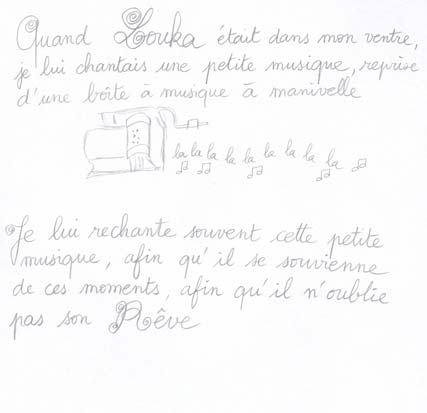 Quand Louka était dans mon ventre,
je lui chantais une petite musique, reprise
d'une boîte à musique à manivelle
la la la la la la la la la la
Je lui rechante souvent cette petite
musique, afin qu'il se souvienne
de ces moments, afin qu'il n'oublie
pas son Rêve